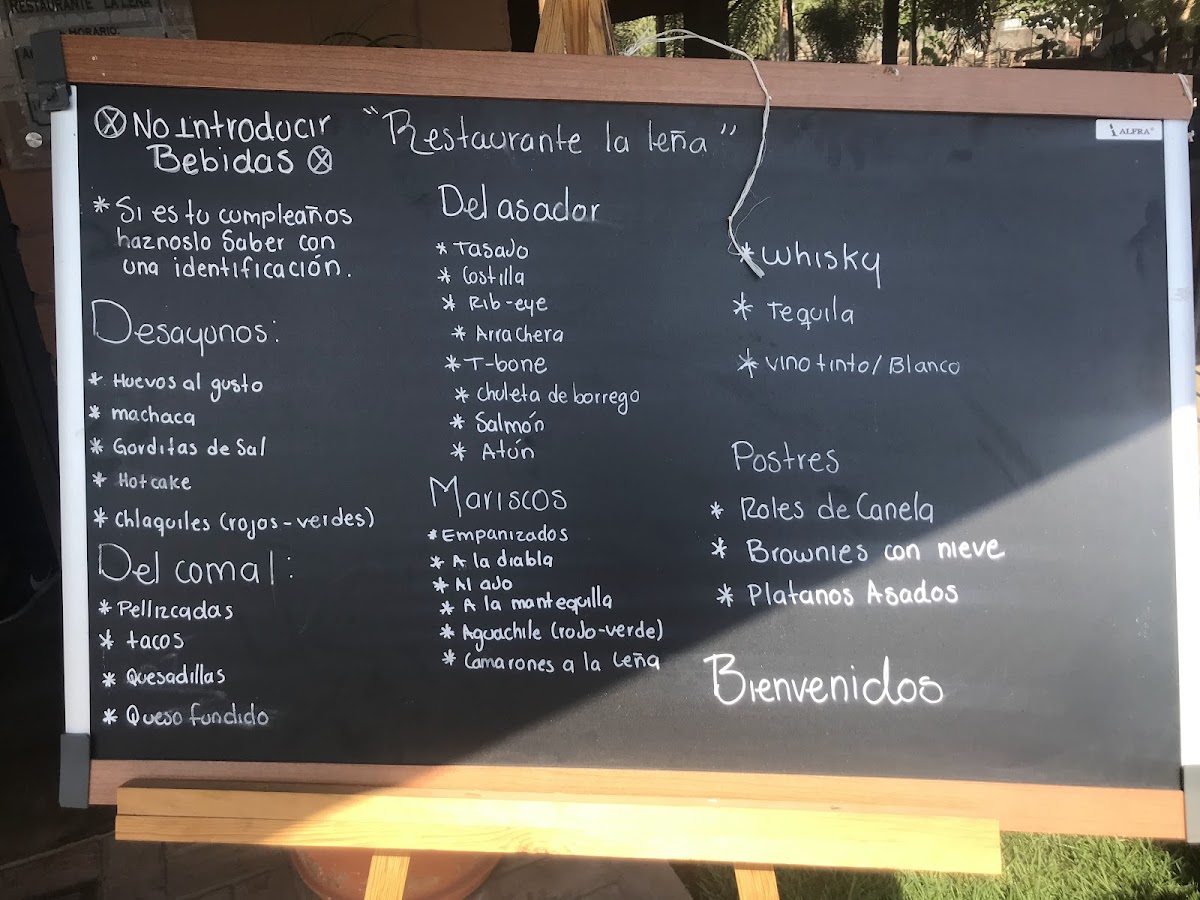 RESTAURANTE LA LEÑA
HORARIO:
ⓧ No Introducir
Bebidas ⓧ
"Restaurante la leña"
ALFRA®
* Si es tu cumpleaños
haznoslo Saber con
una identificación.
Desayunos:
* Huevos al gusto
* machaca
* Gorditas de Sal
* Hotcake
* Chlaquiles (rojos-verdes)
Del comal:
* Pellizcadas
* tacos
* Quesadillas
* Queso fundido
Del asador
* Tasajo
* Costilla
* Rib-eye
* Arrachera
* T-bone
* Chuleta de borrego
* Salmón
* Atún
Mariscos
* Empanizados
* A la diabla
* Al ajo
* A la mantequilla
* Aguachile (rojo-verde)
* Camarones a la leña
* Whisky
* Tequila
* vino tinto/Blanco
Postres
* Roles de Canela
* Brownies con nieve
* Platanos Asados
Bienvenidos